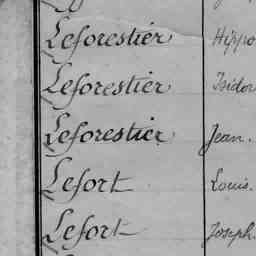 Leforestier Hippo
Leforestier Isidor
Leforestier Jean.
Lefort Louis.
Lefort Joseph.